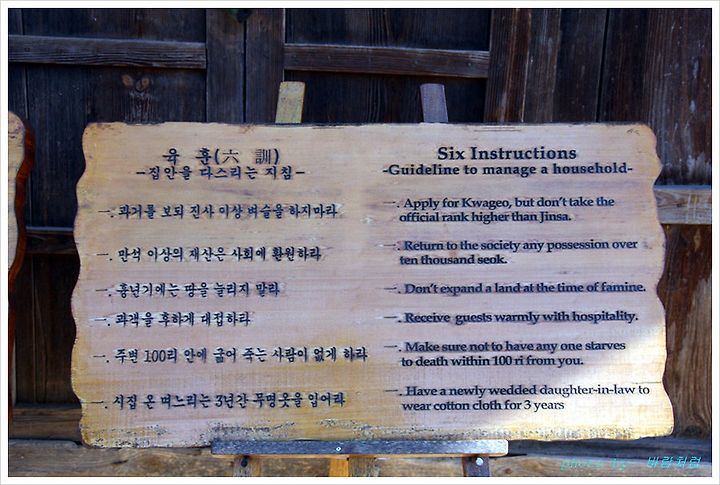 육 훈(六 訓)
-집안을 다스리는 지침-
一. 과거를 보되 진사 이상 벼슬을 하지마라
一. 만석 이상의 재산은 사회에 환원하라
一. 흉년기에는 땅을 늘리지 말라
一. 과객을 후하게 대접하라
一. 주변 100리 안에 굶어 죽는 사람이 없게 하라
一. 시집 온 며느리는 3년간 무명옷을 입어라
Six Instructions
-Guideline to manage a household-
一. Apply for Kwageo, but don't take the
official rank higher than Jinsa.
一. Return to the society any possession over
ten thousand seok.
一. Don't expand a land at the time of famine.
一. Receive guests warmly with hospitality.
一. Make sure not to have any one starves
to death within 100 ri from you.
一. Have a newly wedded daughter-in-law to
wear cotton cloth for 3 years
photo by 바람처럼